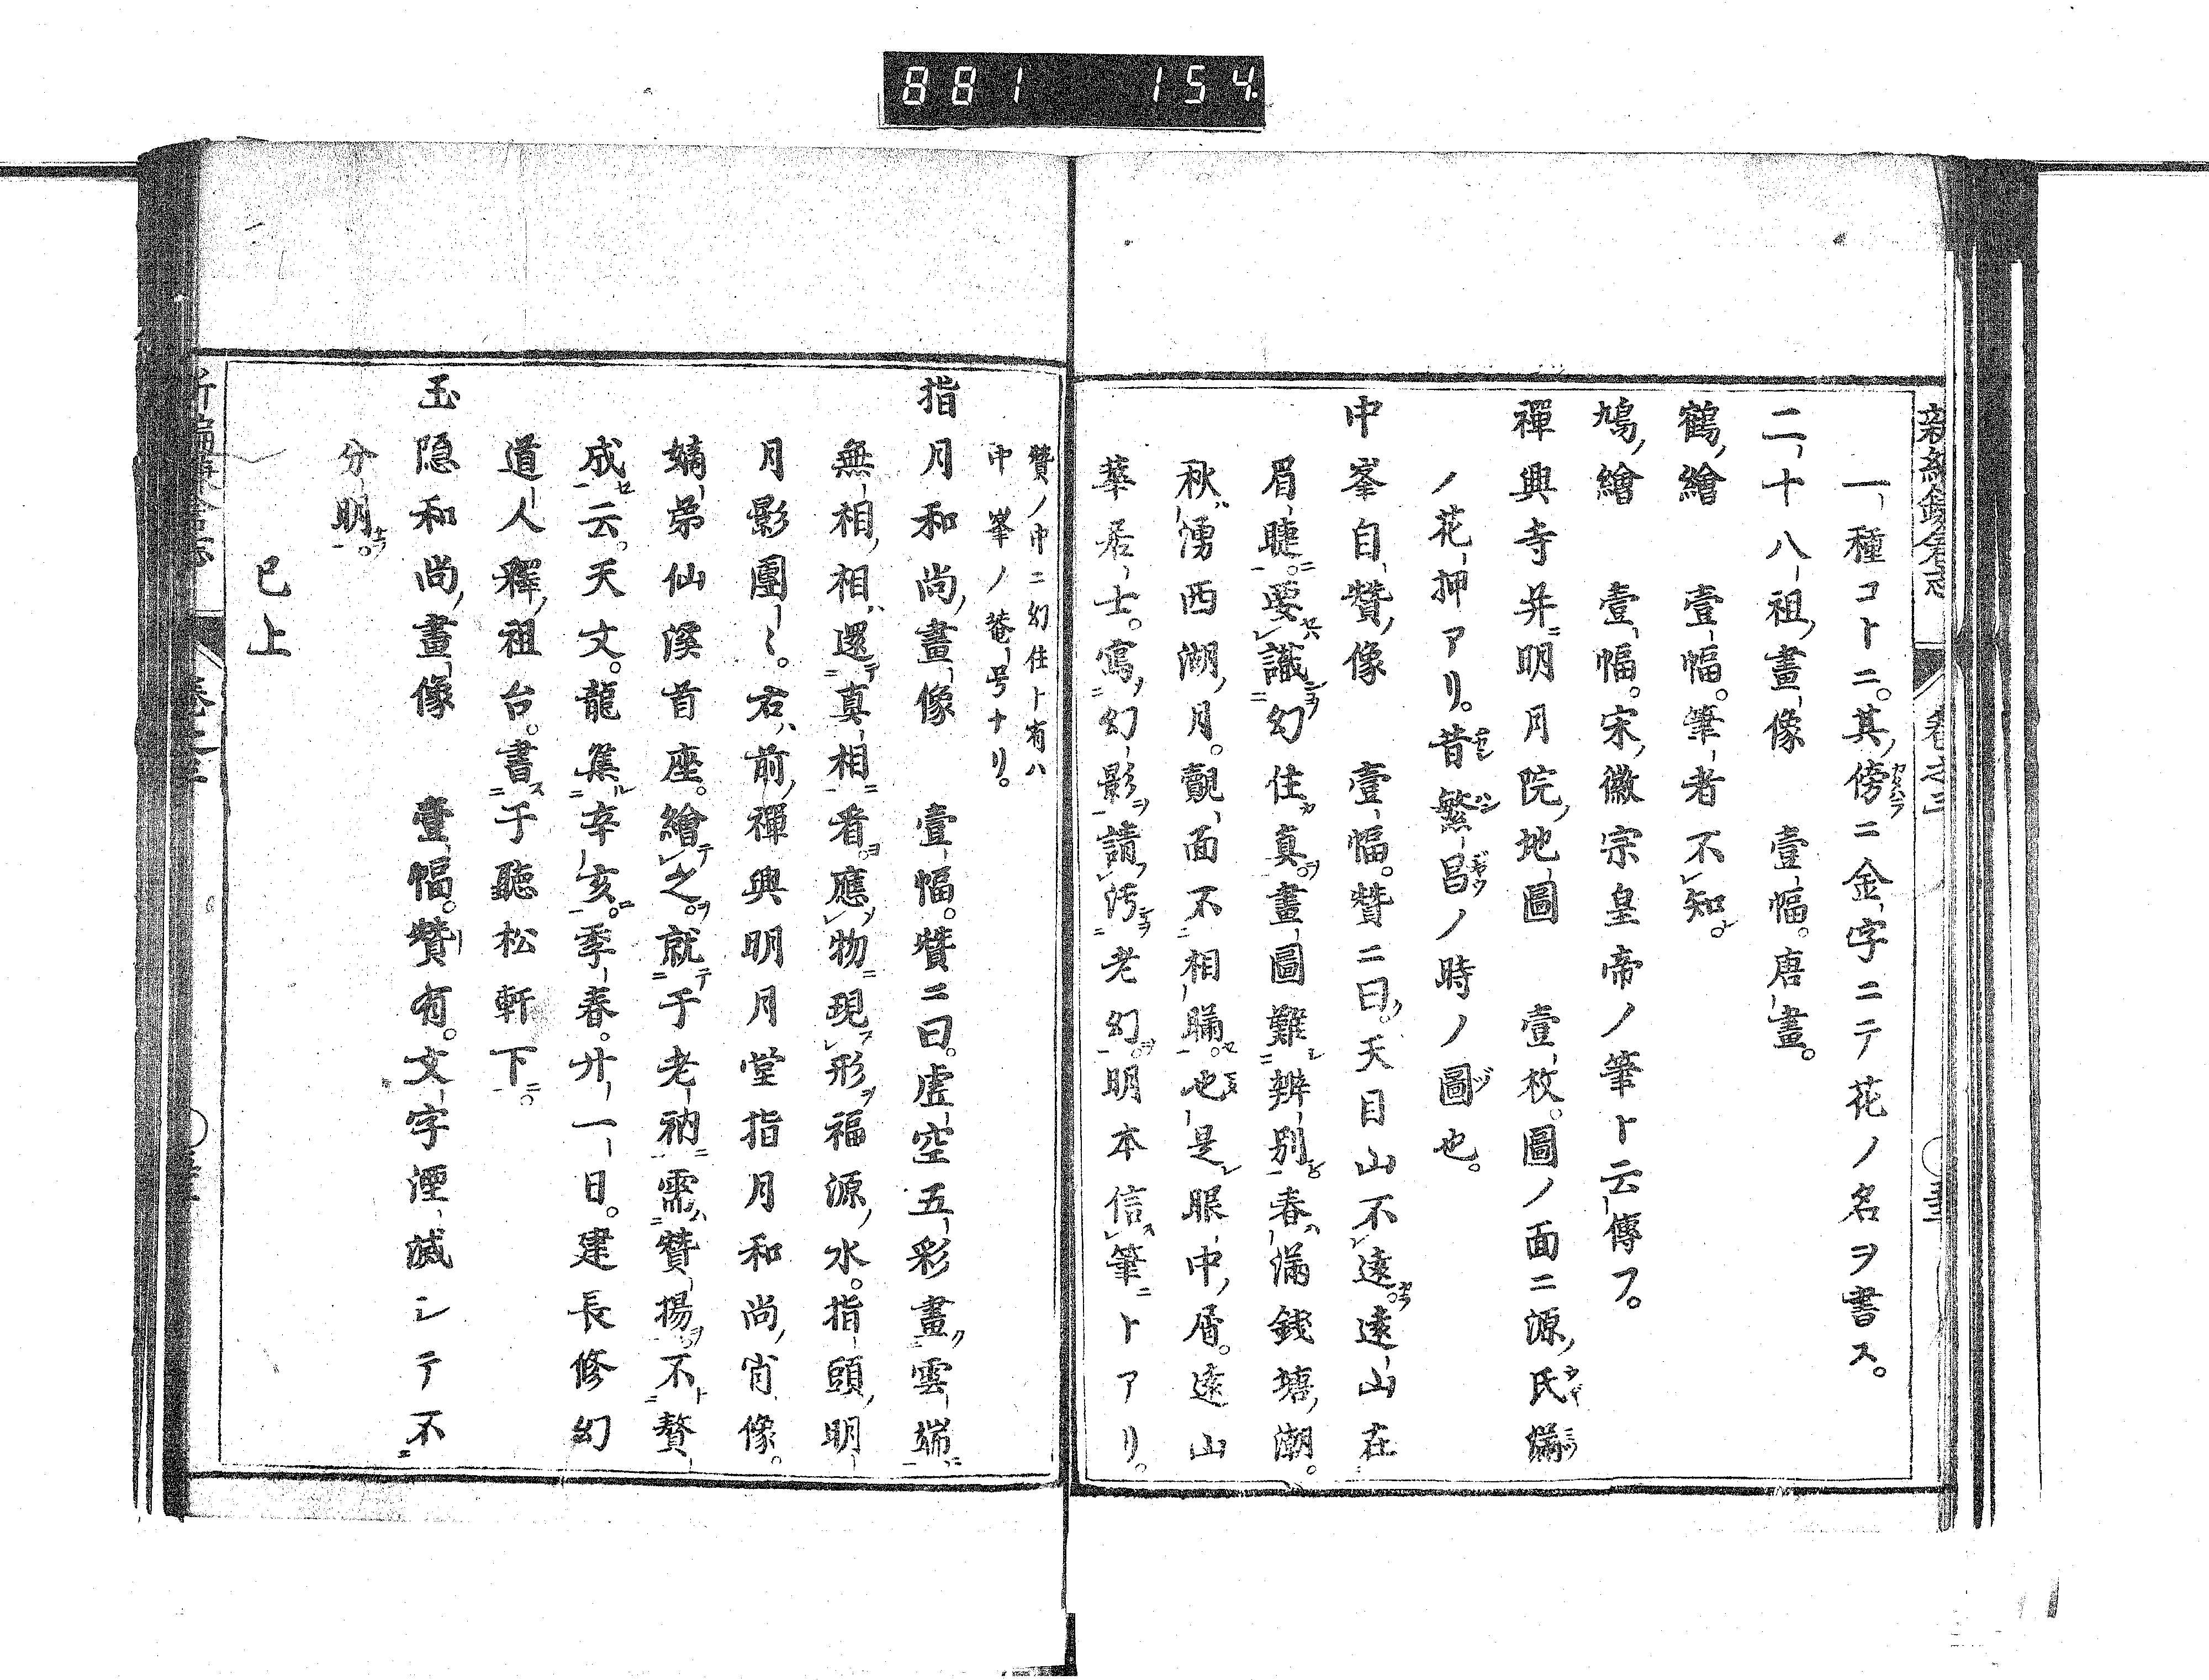 881 154
新編鎌倉志 卷之三
一種コトニ。其傍ニ金字ニテ花ノ名ヲ書ス。
二十八祖畫像 壹幅。唐畫。
鶴繪 壹幅。筆者不知。
鳩繪 壹幅。宋徽宗皇帝ノ筆ト云傳フ。
禪興寺并明月院地圖 壹枚。圖ノ面ニ源氏滿
ノ花押アリ。昔繁昌ノ時ノ圖也。
中峯自贊像 壹幅。贊ニ曰。天目山不遠。遠山在
眉睫。要識幻住真。畫圖難辨別。春滿錢塘潮。
秋湧西湖月。覿面不相瞞。也是眼中屑。遠山
華居士。寫幻影請汚老幻。明本信筆トアリ。
贊ノ中ニ幻住ト有ハ
中峯ノ菴号ナリ。
指月和尚畫像 壹幅。贊ニ曰。虛空五彩畫雲端
無相相還真相看。應物現形福源水。指頭明
月影團〻。右前禪興明月堂指月和尚肖像。
嫡弟仙溪首座。繪之。就于老衲需贊揚。不贅
成云。天文。龍集辛亥。季春。廾一日。建長修幻
道人釋祖台。書于聽松軒下。
玉隠和尚畫像 壹幅。贊有。文字湮滅シテ不
分明。
已上
新編鎌倉志 卷之三